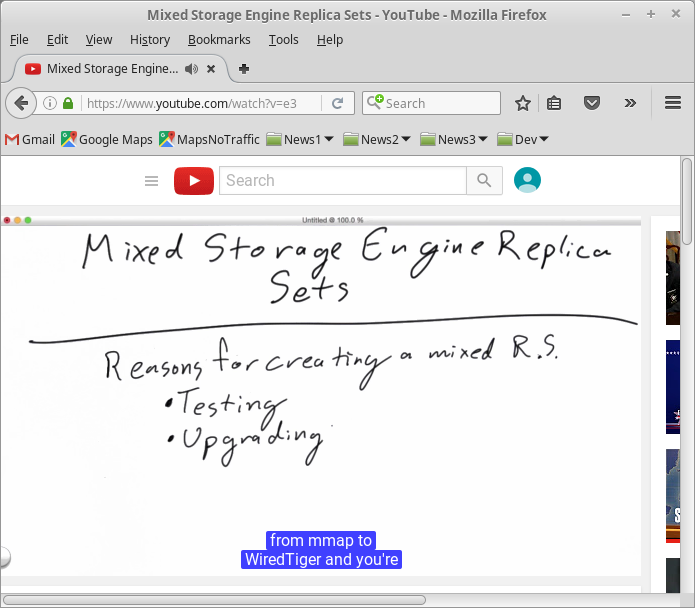 Mixed Storage Engine Replica Sets - YouTube - Mozilla Firefox
File Edit View History Bookmarks Tools Help
Mixed Storage Engine...
https://www.youtube.com/watch?v=e3
Search
Gmail Google Maps MapsNoTraffic News1 News2 News3 Dev
Search
Untitled @ 100.0 %
Mixed Storage Engine Replica
Sets
Reasons for creating a mixed R.S.
• Testing
• Upgrading
from mmap to
WiredTiger and you're